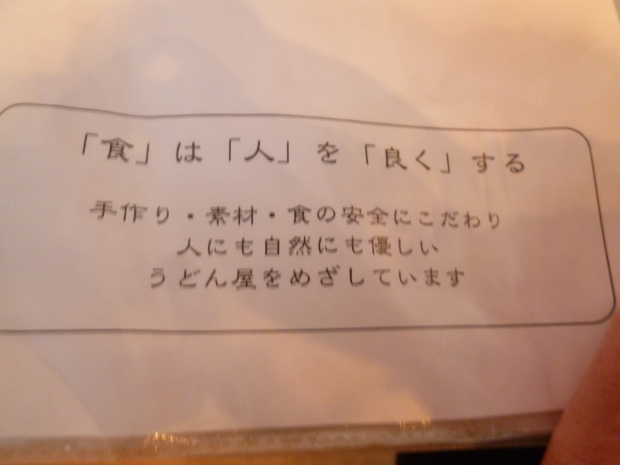 「食」は「人」を「良く」する
手作り・素材・食の安全にこだわり
人にも自然にも優しい
うどん屋をめざしています